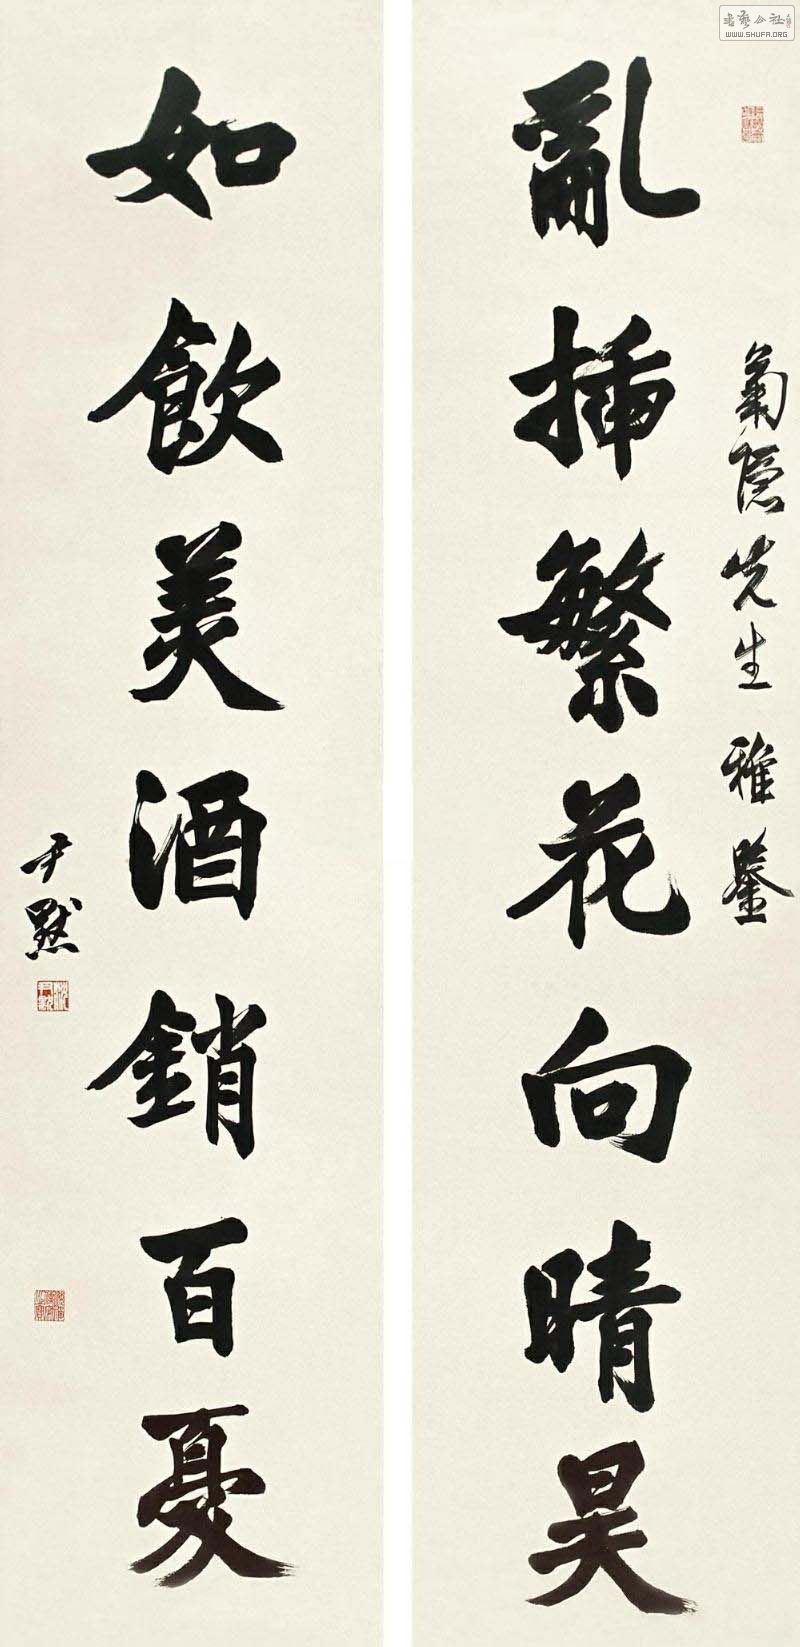 菊隐先生雅鑒
亂插繁花向晴昊
如飲美酒銷百憂
尹默
沈尹默
書藝公社
WWW.SHUFA.ORG